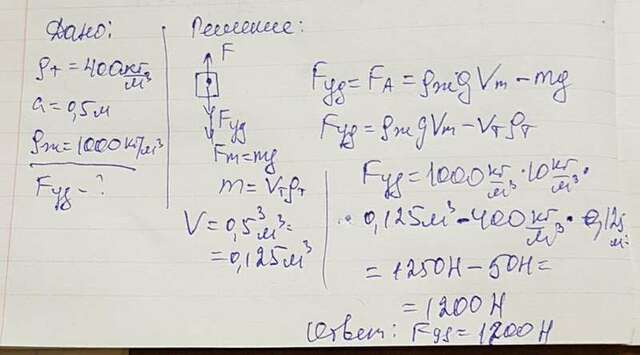 Дано:
ρт = 400 кг/м³
a = 0,5 м
ρж = 1000 кг/м³
Fуд - ?
Решение:
F
Fуд
Fт = mg
m = Vтρт
V = 0,5³ м³ =
= 0,125 м³
Fуд = FA = ρжgVт - mg
Fуд = ρжgVт - Vтρт
Fуд = 1000 кг/м³ · 10 кг/м³ ·
· 0,125 м³ - 400 кг/м³ · 0,125 м³ =
= 1250 Н - 50 Н =
= 1200 Н
Ответ: Fуд = 1200 Н